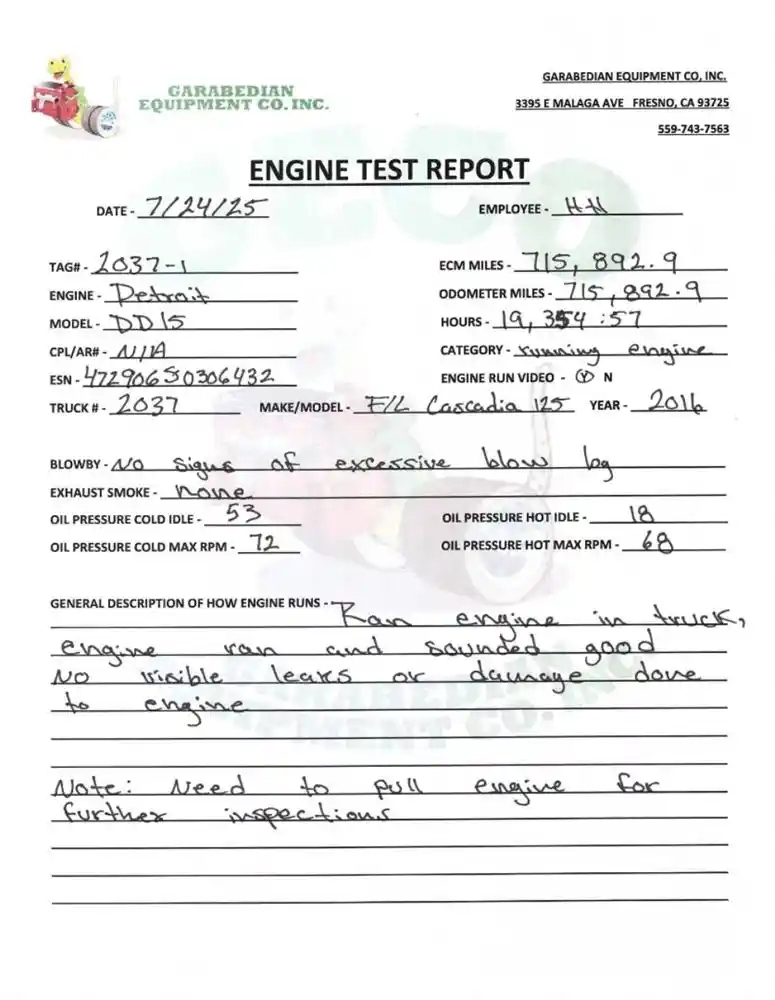 GARABEDIAN
EQUIPMENT CO. INC.
GARABEDIAN EQUIPMENT CO, INC.
3395 E MALAGA AVE FRESNO, CA 93725
559-743-7563
ENGINE TEST REPORT
DATE - 7/24/25 EMPLOYEE - HH
TAG# - 2037-1 ECM MILES - 715,892.9
ENGINE - Detroit ODOMETER MILES - 715,892.9
MODEL - DD15 HOURS - 19,354:57
CPL/AR# - N/A CATEGORY - running engine
ESN - 472906S0306432 ENGINE RUN VIDEO - Y N
TRUCK # - 2037 MAKE/MODEL - F/L Cascadia 125 YEAR - 2016
BLOWBY - No signs of excessive blow by
EXHAUST SMOKE - none
OIL PRESSURE COLD IDLE - 53 OIL PRESSURE HOT IDLE - 18
OIL PRESSURE COLD MAX RPM - 72 OIL PRESSURE HOT MAX RPM - 68
GENERAL DESCRIPTION OF HOW ENGINE RUNS - Ran engine in truck,
engine ran and sounded good
No visible leaks or damage done
to engine
Note: Need to pull engine for
further inspections
GECO
GARABEDIAN
EQUIPMENT CO. INC.